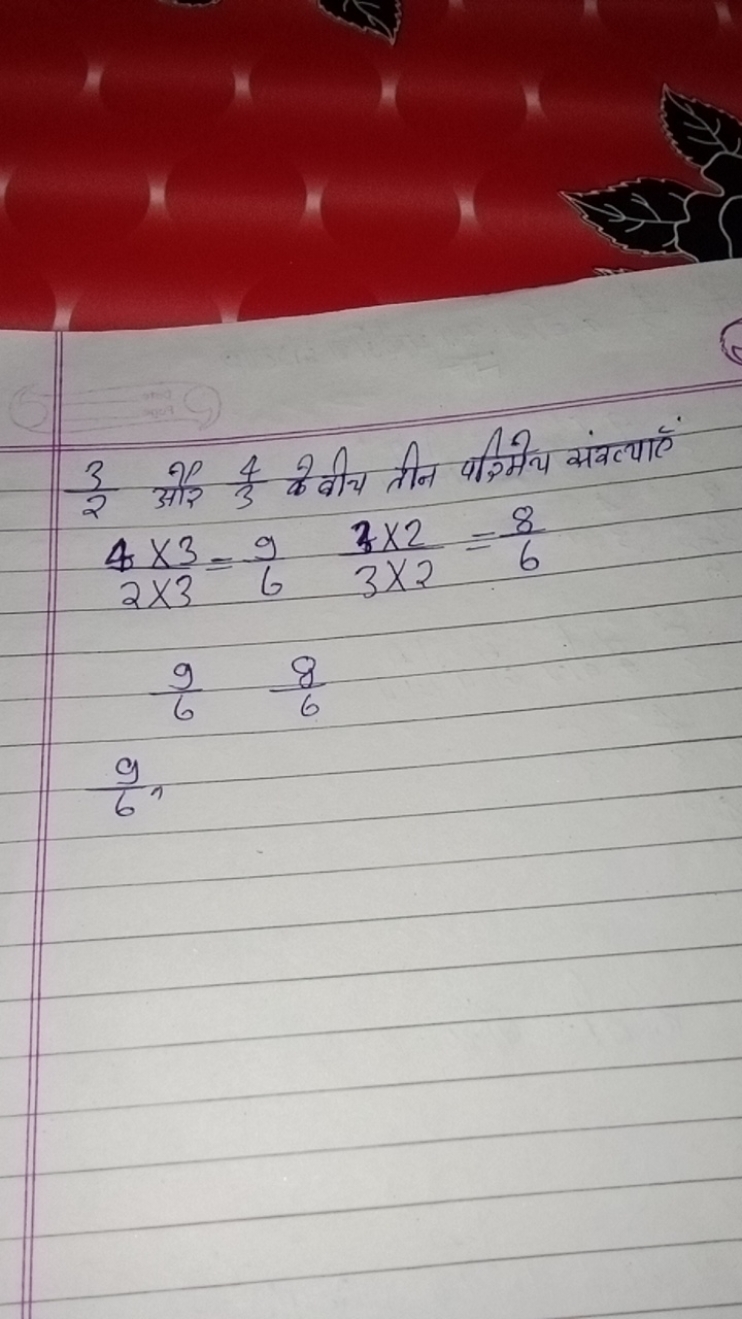 3/2 और 4/3 के बीच तीन परिमेय संख्याएँ
4×3/2×3 = 9/6 3×2/3×2 = 8/6
9/6 8/6
9/6,